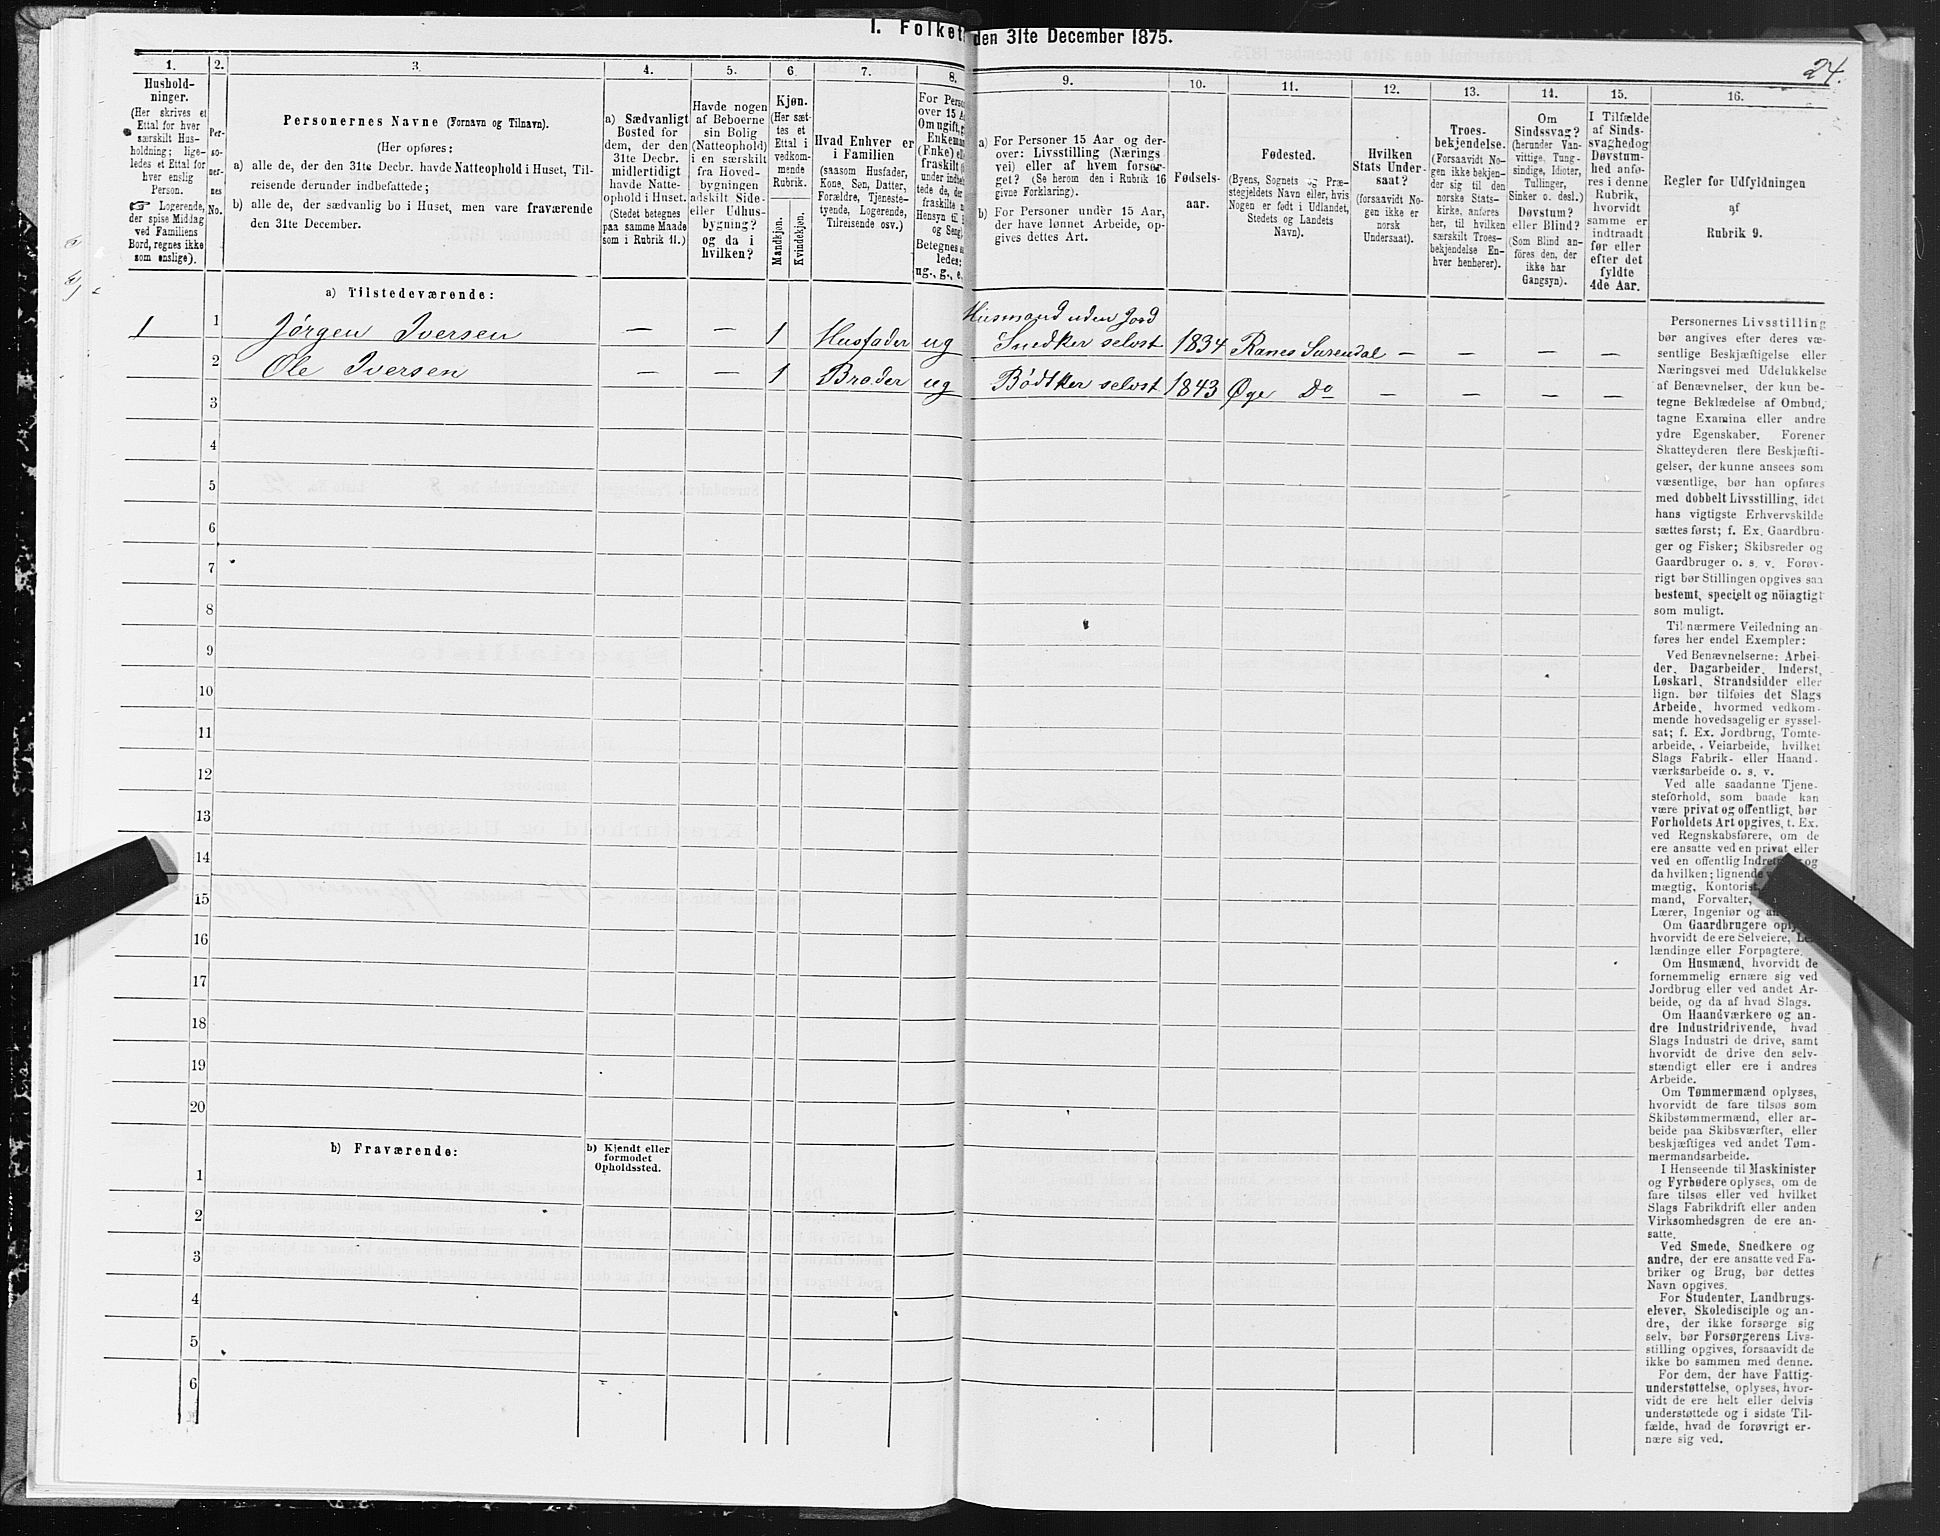 I. Folket
den 31te December 1875.
24.
1.
Hushold-
ninger.
(Her skrives et
Ettal for hver
særskilt Hus-
holdning; lige-
ledes et Ettal for
hver enslig
Person.
☞ Logerende,
der spise Middag
ved Familiens
Bord, regnes ikke
som enslige).
2.
Per-
so-
ner-
nes
No.
3.
Personernes Navne (Fornavn og Tilnavn).
(Her opføres:
a) alle de, der den 31te Decbr. havde Natteophold i Huset, Til-
reisende derunder indbefattede;
b) alle de, der sædvanlig bo i Huset, men vare fraværende
den 31te December.
4.
a) Sædvanligt
Bosted for
dem, der den
31te Decbr.
midlertidigt
havde Natte-
ophold i Huset.
(Stedet betegnes
paa samme Maade
som i Rubrik 11.)
5.
Havde nogen
af Beboerne
sin Bolig
(Natteophold)
i en særskilt
fra Hoved-
bygningen
adskilt Side-
eller Udhus-
bygning?
og da i
hvilken?
6.
Kjøn.
(Her sæt-
tes et
Ettal i
vedkom-
mende
Rubrik.
Mandkjøn.
Kvindekjøn.
7.
Hvad Enhver er
i Familien
(saasom Husfader,
Kone, Søn, Datter,
Forældre, Tjeneste-
tyende, Logerende,
Tilreisende osv.)
8.
For Perso
over 15 A
Om ugift, g
Enkeman
(Fnke) el
fraskilt (
under indbe
tede de, der
fraskilte
Hensyn til B
og Seng)
Betegnes s
ledes:
ug., g., e.
9.
a) For Personer 15 Aar og der-
over: Livsstilling (Nærings
vei) eller af hvem forsør-
get? (Se herom den i Rubrik 16
givne Forklaring).
b) For Personer under 15 Aar,
der have lønnet Arbeide, op-
gives dettes Art.
10.
Fødsels-
aar.
11.
Fødested.
(Byens, Sognets og Præ-
stegjeldets Navn eller, hvis
Nogen er født i Udlandet,
Stedets og Landets
Navn).
12.
Hvilken
Stats Under-
saat?
(forsaavidt No-
gen ikke er
norsk
Undersaat).
13.
Troes-
bekjendelse.
(Forsaavidt No-
gen ikke bekjen-
der sig til den
norske Stats-
kirke, anføres
her, til hvilken
særskilt Troes-
bekjendelse En-
hver henhører).
14.
Om
Sindssvag?
(herunder Van-
vittige, Tung-
sindige, Idioter,
Tullinger,
Sinker o. desl.)
Døvstum?
eller Blind?
(Som Blind an-
føres den, der
ikke har
Gangsyn).
15.
I Tilfælde
af Sinds-
svaghed og
Døvstum-
hed anfø-
res i denne
Rubrik,
hvorvidt
samme er
indtraadt
før eller
efter det
fyldte
4de Aar.
16.
Regler for Udfyldningen
af
Rubrik 9.
a) Tilstedeværende:
1 1 Jørgen Iversen — — 1 Husfader ug Husmand uden Jord
Snedker selvst 1834 Ranes Surendal — — — —
2 Ole Iversen — — 1 Broder ug Bödtker selvst 1843 Øye Do — — — —
3
4
5
6
7
8
9
10
11
12
13
14
15
16
17
18
19
20
b) Fraværende:
b) Kjendt eller
formodet
Opholdssted.
1
2
3
4
5
6
Personernes Livsstilling
bør angives efter deres væ-
sentlige Beskjæftigelse eller
Næringsvei med Udelukkelse
af Benævnelser, der kun be-
tegne Beklædelse af Ombud,
tagne Examina eller andre
ydre Egenskaber. Forener
Skatteyderen flere Beskjæfti-
gelser, der kunne ansees som
væsentlige, bør han opføres
med dobbelt Livsstilling, idet
hans vigtigste Erhvervskilde
sættes først; f. Ex. Gaardbru-
ger og Fisker; Skibsreder og
Gaardbruger o. s. v. Forøv-
rigt bør Stillingen opgives saa
bestemt, specielt og nöiagtigt
som muligt.
Til nærmere Veiledning an-
føres her endel Exempler:
Ved Benævnelserne: Arbei-
der, Dagarbeider, Inderst,
Løskarl, Strandsidder eller
lign. bør tilføies det Slags
Arbeide, hvormed vedkom-
mende hovedsagelig er syssel-
sat; f. Ex. Jordbrug, Tomte-
arbeide, Veiarbeide, hvilket
Slags Fabrik- eller Haand-
værksarbeide o. s. v.
Ved alle saadanne Tjene-
steforhold, som baade kan
være privat og offentligt, bør
Forholdets Art opgives, f. Ex.
ved Regnskabsførere, om de
ere ansatte ved en privat eller
ved en offentlig Indre og
da hvilken; lignende
mægtig, Kontorist,
mand, Forvalter,
Lærer, Ingeniør og an
Om Gaardbrugere oply
hvorvidt de ere Selveiere, Lei
lændinge eller Forpagtere.
Om Husmænd, hvorvidt de
fornemmelig ernære sig ved
Jordbrug eller ved andet Ar-
beide, og da af hvad Slags.
Om Haandværkere og an-
dre Industridrivende, hvad
Slags Industri de drive, samt
hvorvidt de drive den selv-
stændigt eller ere i andres
Arbeide.
Om Tømmermænd oplyses,
hvorvidt de fare tilsøs som
Skibstømmermænd, eller ar-
beide paa Skibsværfter, eller
beskjæftiges ved andet Tøm-
mermandsarbeide.
I Henseende til Maskinister
og Fyrbødere oplyses, om de
fare tilsøs eller ved hvilket
Slags Fabrikdrift eller anden
Virksomhedsgren de ere an-
satte.
Ved Smede, Snedkere og
andre, der ere ansatte ved Fa-
briker og Brug, bør dettes
Navn opgives.
For Studenter, Landbrugs-
elever, Skoledisciple og an-
dre, der ikke forsørge sig
selv, bør Forsørgerens Livs-
stilling opgives, forsaavidt de
ikke bo sammen med denne.
For dem, der have Fattig-
understøttelse, oplyses, hvor-
vidt de ere helt eller delvis
understøttede og i sidste Til-
fælde, hvad de forøvrigt er-
nære sig ved.